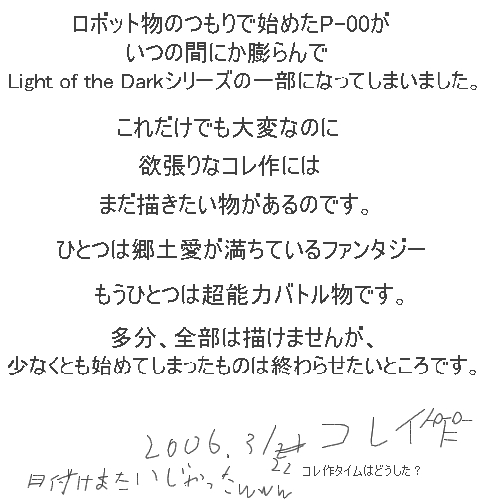 ロボット物のつもりで始めたP-00が
いつの間にか膨らんで
Light of the Darkシリーズの一部になってしまいました。
これだけでも大変なのに
欲張りなコレ作には
まだ描きたい物があるのです。
ひとつは郷土愛が満ちているファンタジー
もうひとつは超能力バトル物です。
多分、全部は描けませんが、
少なくとも始めてしまったものは終わらせたいところです。
2006.3/21 コレ作
22 コレ作タイムはどうした？
日付けまたいじゃったwww